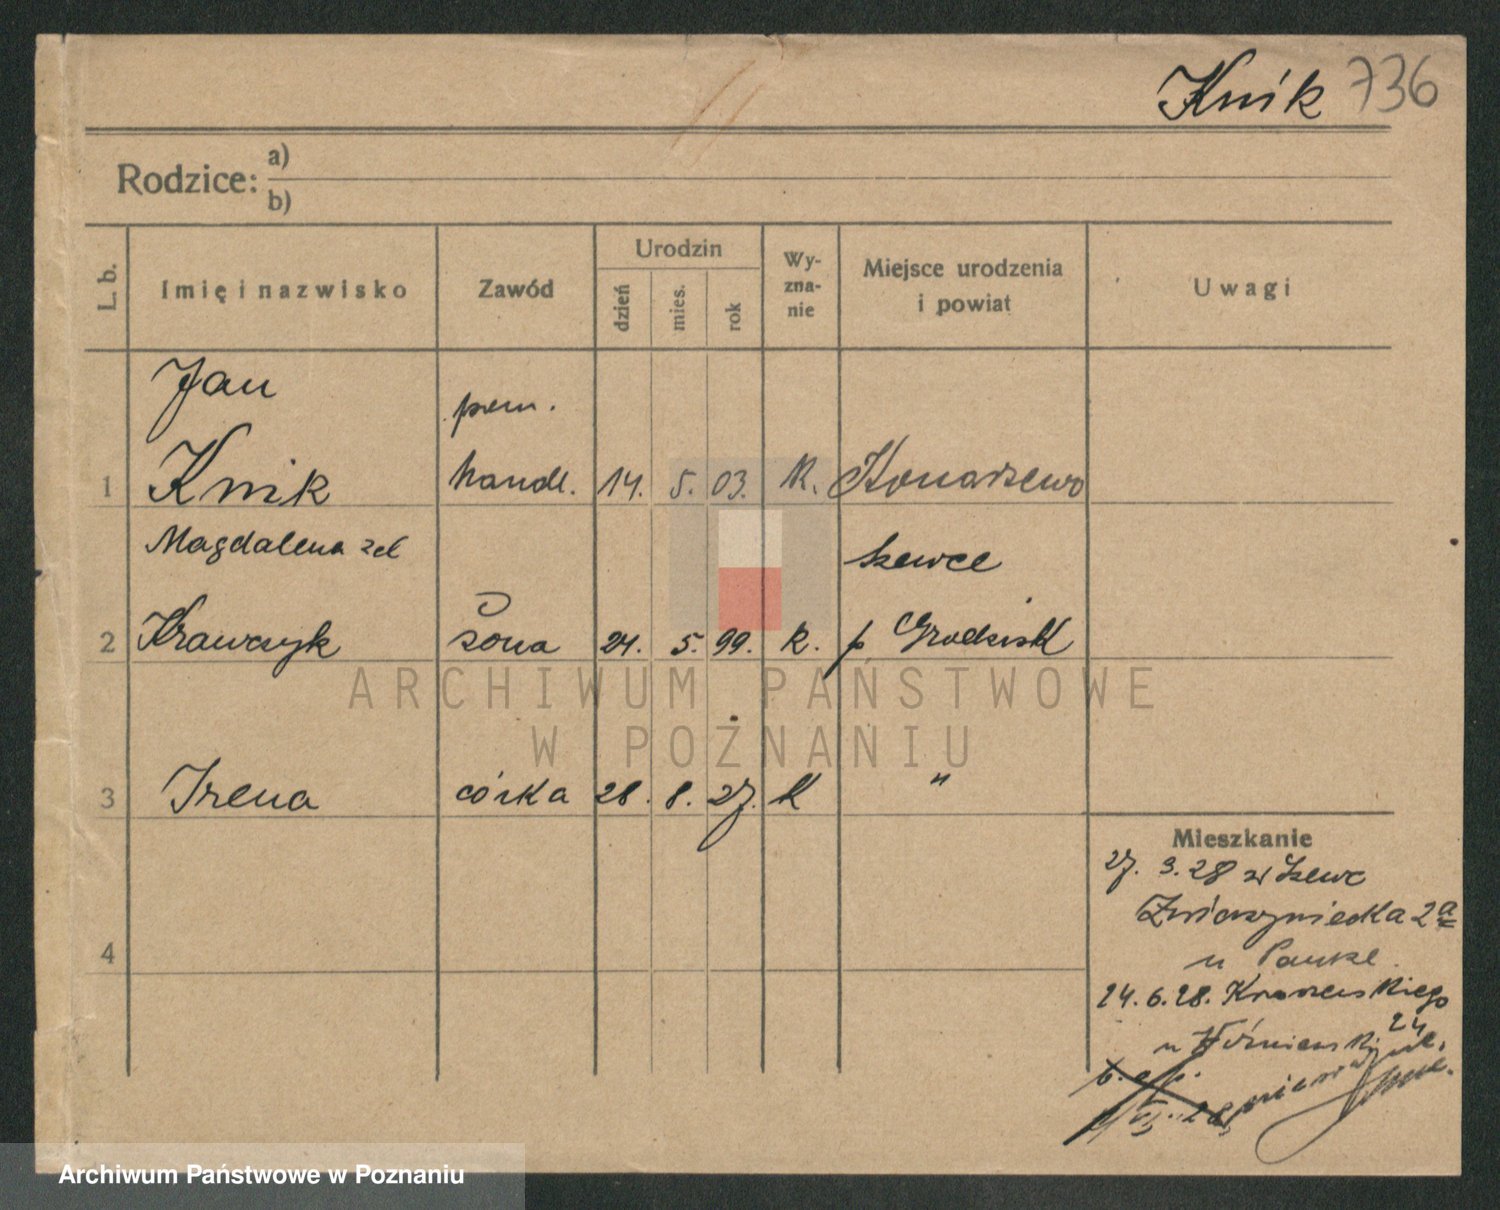 Knik 736
Rodzice: a)
b)
L. b.
Imię i nazwisko
Zawód
Urodzin
dzień
mies.
rok
Wy-
zna-
nie
Miejsce urodzenia
i powiat
Uwagi
Jan
pom.
1 Knik handl. 14. 5. 03. K. Konarzewo
Magdalena zd Szewce
2 Krawczyk żona 24. 5. 99. k. p Grodzisk
3 Irena córka 28. 8. 27. k "
4
Mieszkanie
27. 3. 28 z Szewc
Zwierzyniecka 2a
u Pauke
24. 6. 28. Kraszewskiego
24
u
28
ARCHIWUM PAŃSTWOWE
W POZNANIU
Archiwum Państwowe w Poznaniu